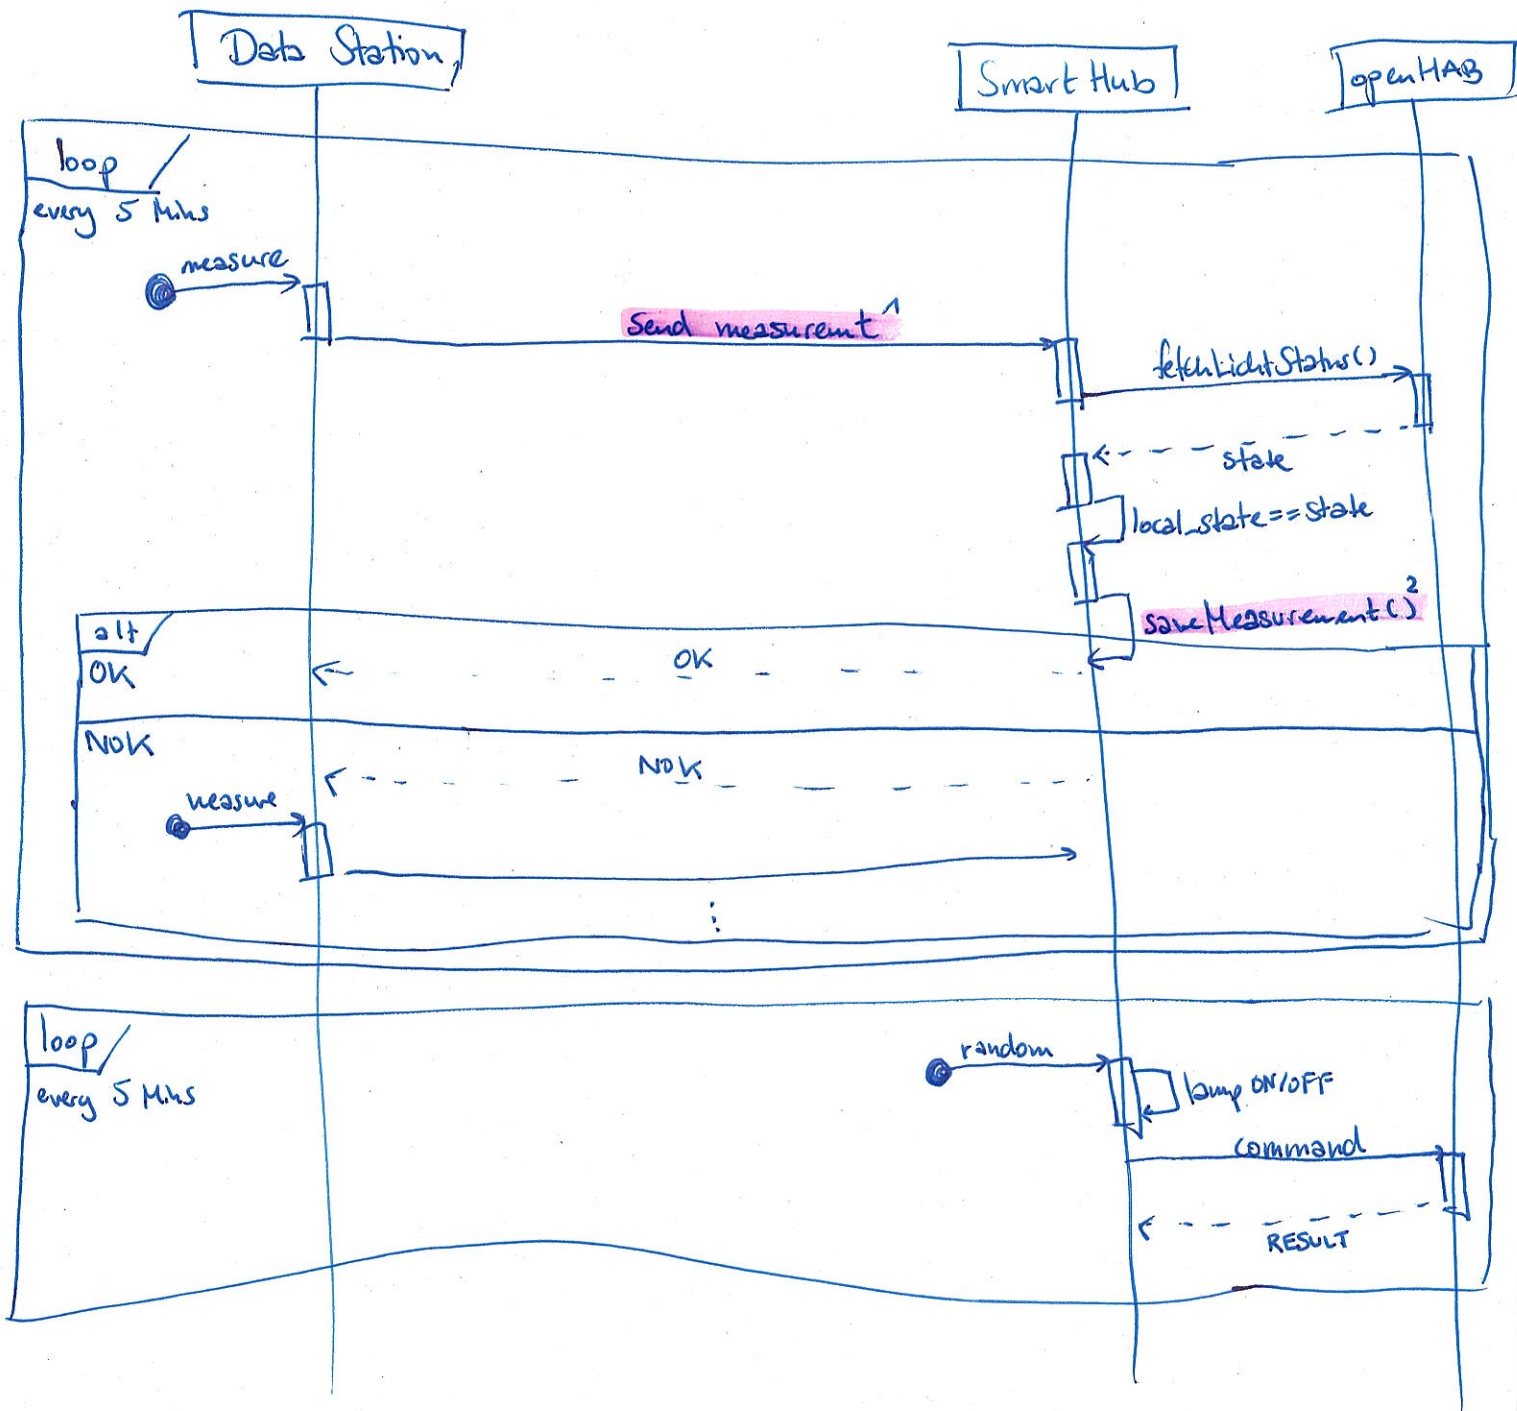 Data Station
Smart Hub
openHAB
loop
every 5 Mins
measure
Send measuremt 1
fetchLichtStatus()
state
local_state==state
saveMeasurement() 2
alt
OK
OK
NOK
NOK
measure
⋮
loop
every 5 Mins
random
lamp ON/OFF
command
RESULT